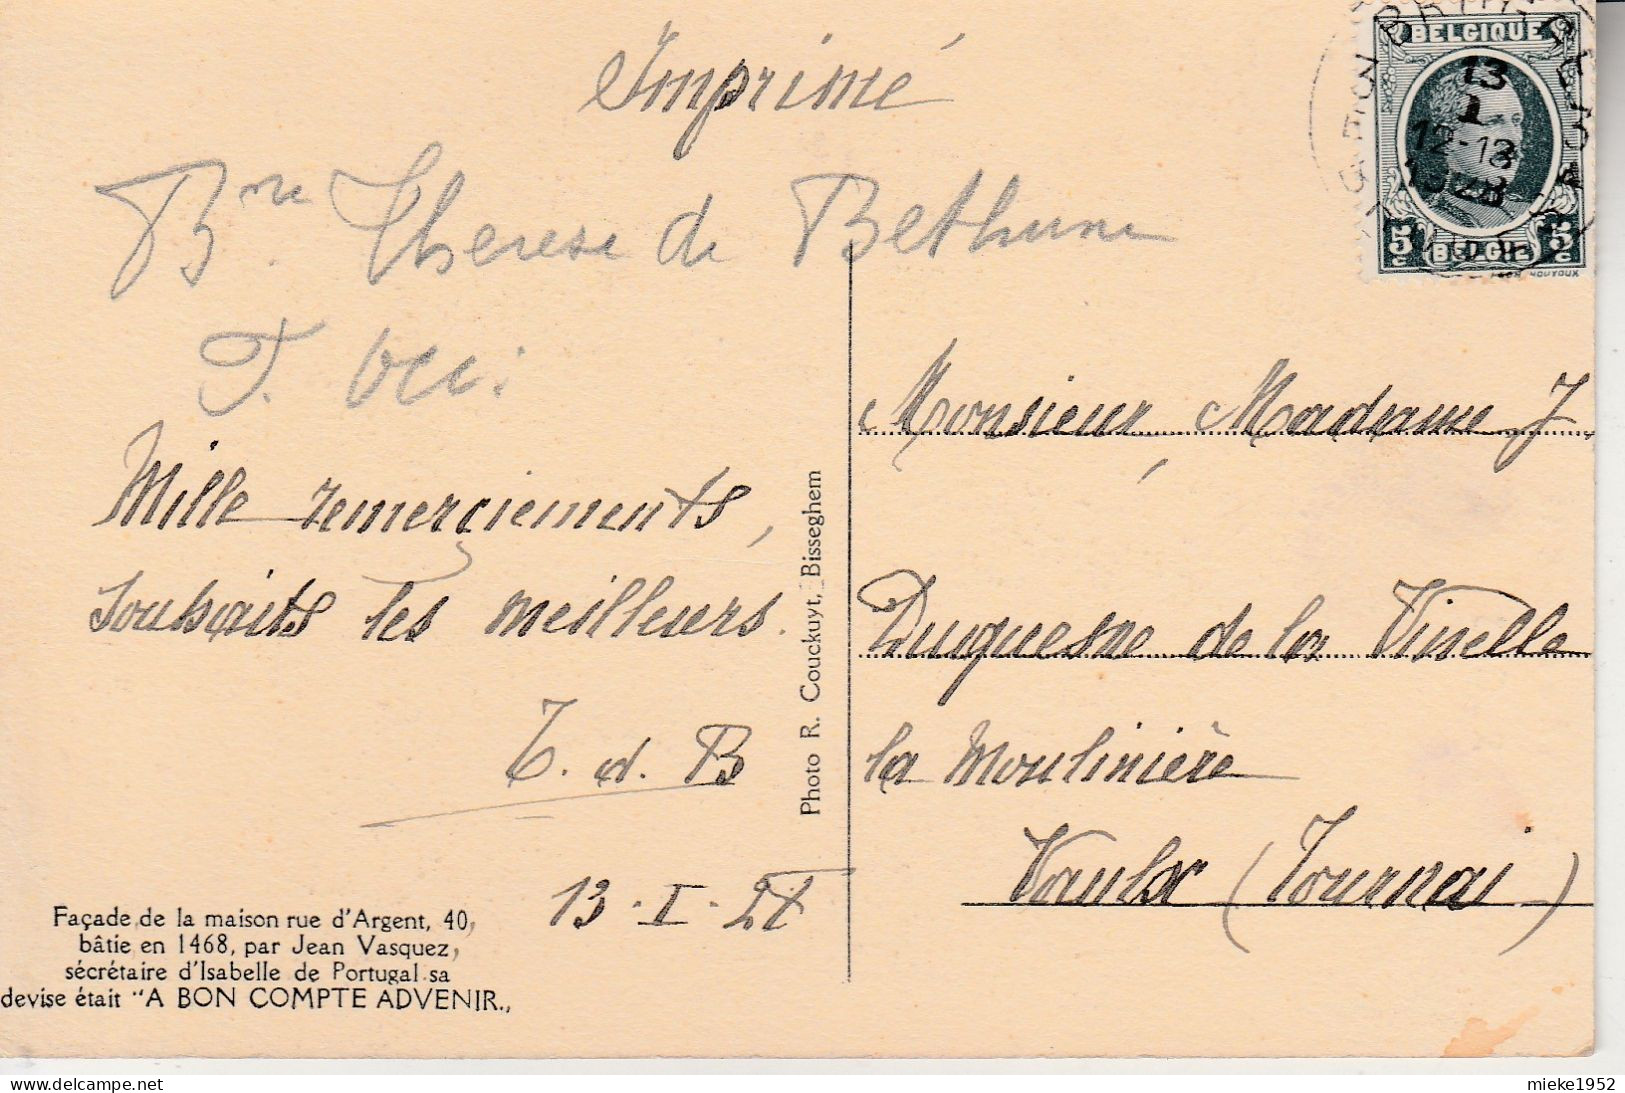 Imprimé
Bne Therese de Bethune
Mille remerçiements,
souhaits les meilleurs.
T. d. B
13 - I - 28
Façade de la maison rue d'Argent, 40,
bâtie en 1468, par Jean Vasquez,
sécrétaire d'Isabelle de Portugal sa
devise était "A BON COMPTE ADVENIR.,,
Photo R. Couckuyt, Bisseghem
BELGIQUE
13
I
12-13
1928
5c BELGIE 5c
Monsieur, Madame J.
Duquesne de la Vinelle
la Moulinière
Vaulx (Tournai)
mieke1952